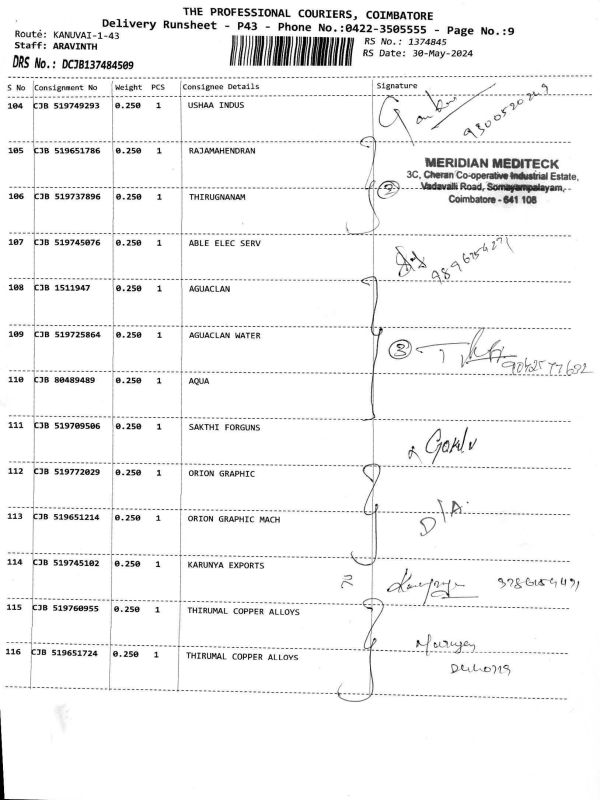 THE PROFESSIONAL COURIERS, COIMBATORE
Delivery Runsheet - P43 - Phone No.:0422-3505555 - Page No.:9
Route: KANUVAI-1-43
RS No.: 1374845
Staff: ARAVINTH
RS Date: 30-May-2024
DRS No.: DCJB137484509
S No Consignment No Weight PCS Consignee Details Signature
104 CJB 519749293 0.250 1 USHAA INDUS
105 CJB 519651786 0.250 1 RAJAMAHENDRAN
MERIDIAN MEDITECK
3C, Cheran Co-operative Industrial Estate,
Vadavalli Road, Somayampalayam,
Coimbatore - 641 108
106 CJB 519737896 0.250 1 THIRUGNANAM
107 CJB 519745076 0.250 1 ABLE ELEC SERV
108 CJB 1511947 0.250 1 AGUACLAN
109 CJB 519725864 0.250 1 AGUACLAN WATER
3
110 CJB 80489489 0.250 1 AQUA
111 CJB 519709506 0.250 1 SAKTHI FORGUNS
Gokul
112 CJB 519772029 0.250 1 ORION GRAPHIC
113 CJB 519651214 0.250 1 ORION GRAPHIC MACH
114 CJB 519745102 0.250 1 KARUNYA EXPORTS
115 CJB 519760955 0.250 1 THIRUMAL COPPER ALLOYS
116 CJB 519651724 0.250 1 THIRUMAL COPPER ALLOYS